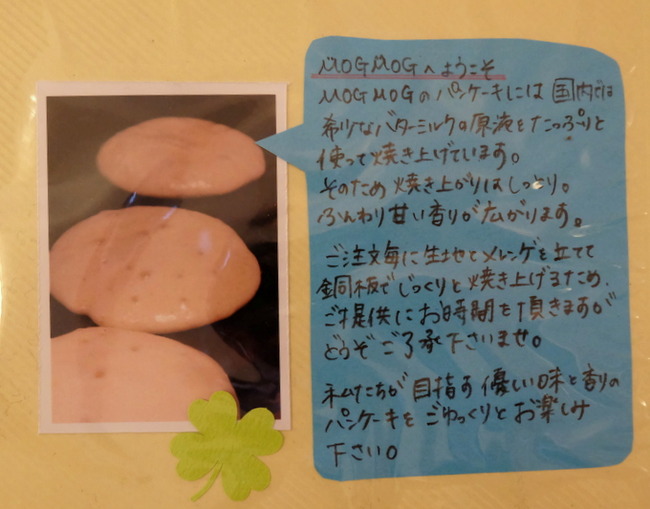 MOGMOGへようこそ
MOGMOGのパンケーキには国内では
希少なバターミルクの原液をたっぷりと
使って焼き上げています。
そのため焼き上がりはしっとり。
ふんわり甘い香りが広がります。
ご注文毎に生地とメレンゲを立てて
銅板でじっくりと焼き上げるため、
ご提供にお時間を頂きますが
どうぞご了承下さいませ。
私たちが目指す優しい味と香りの
パンケーキをごゆっくりとお楽しみ
下さい。